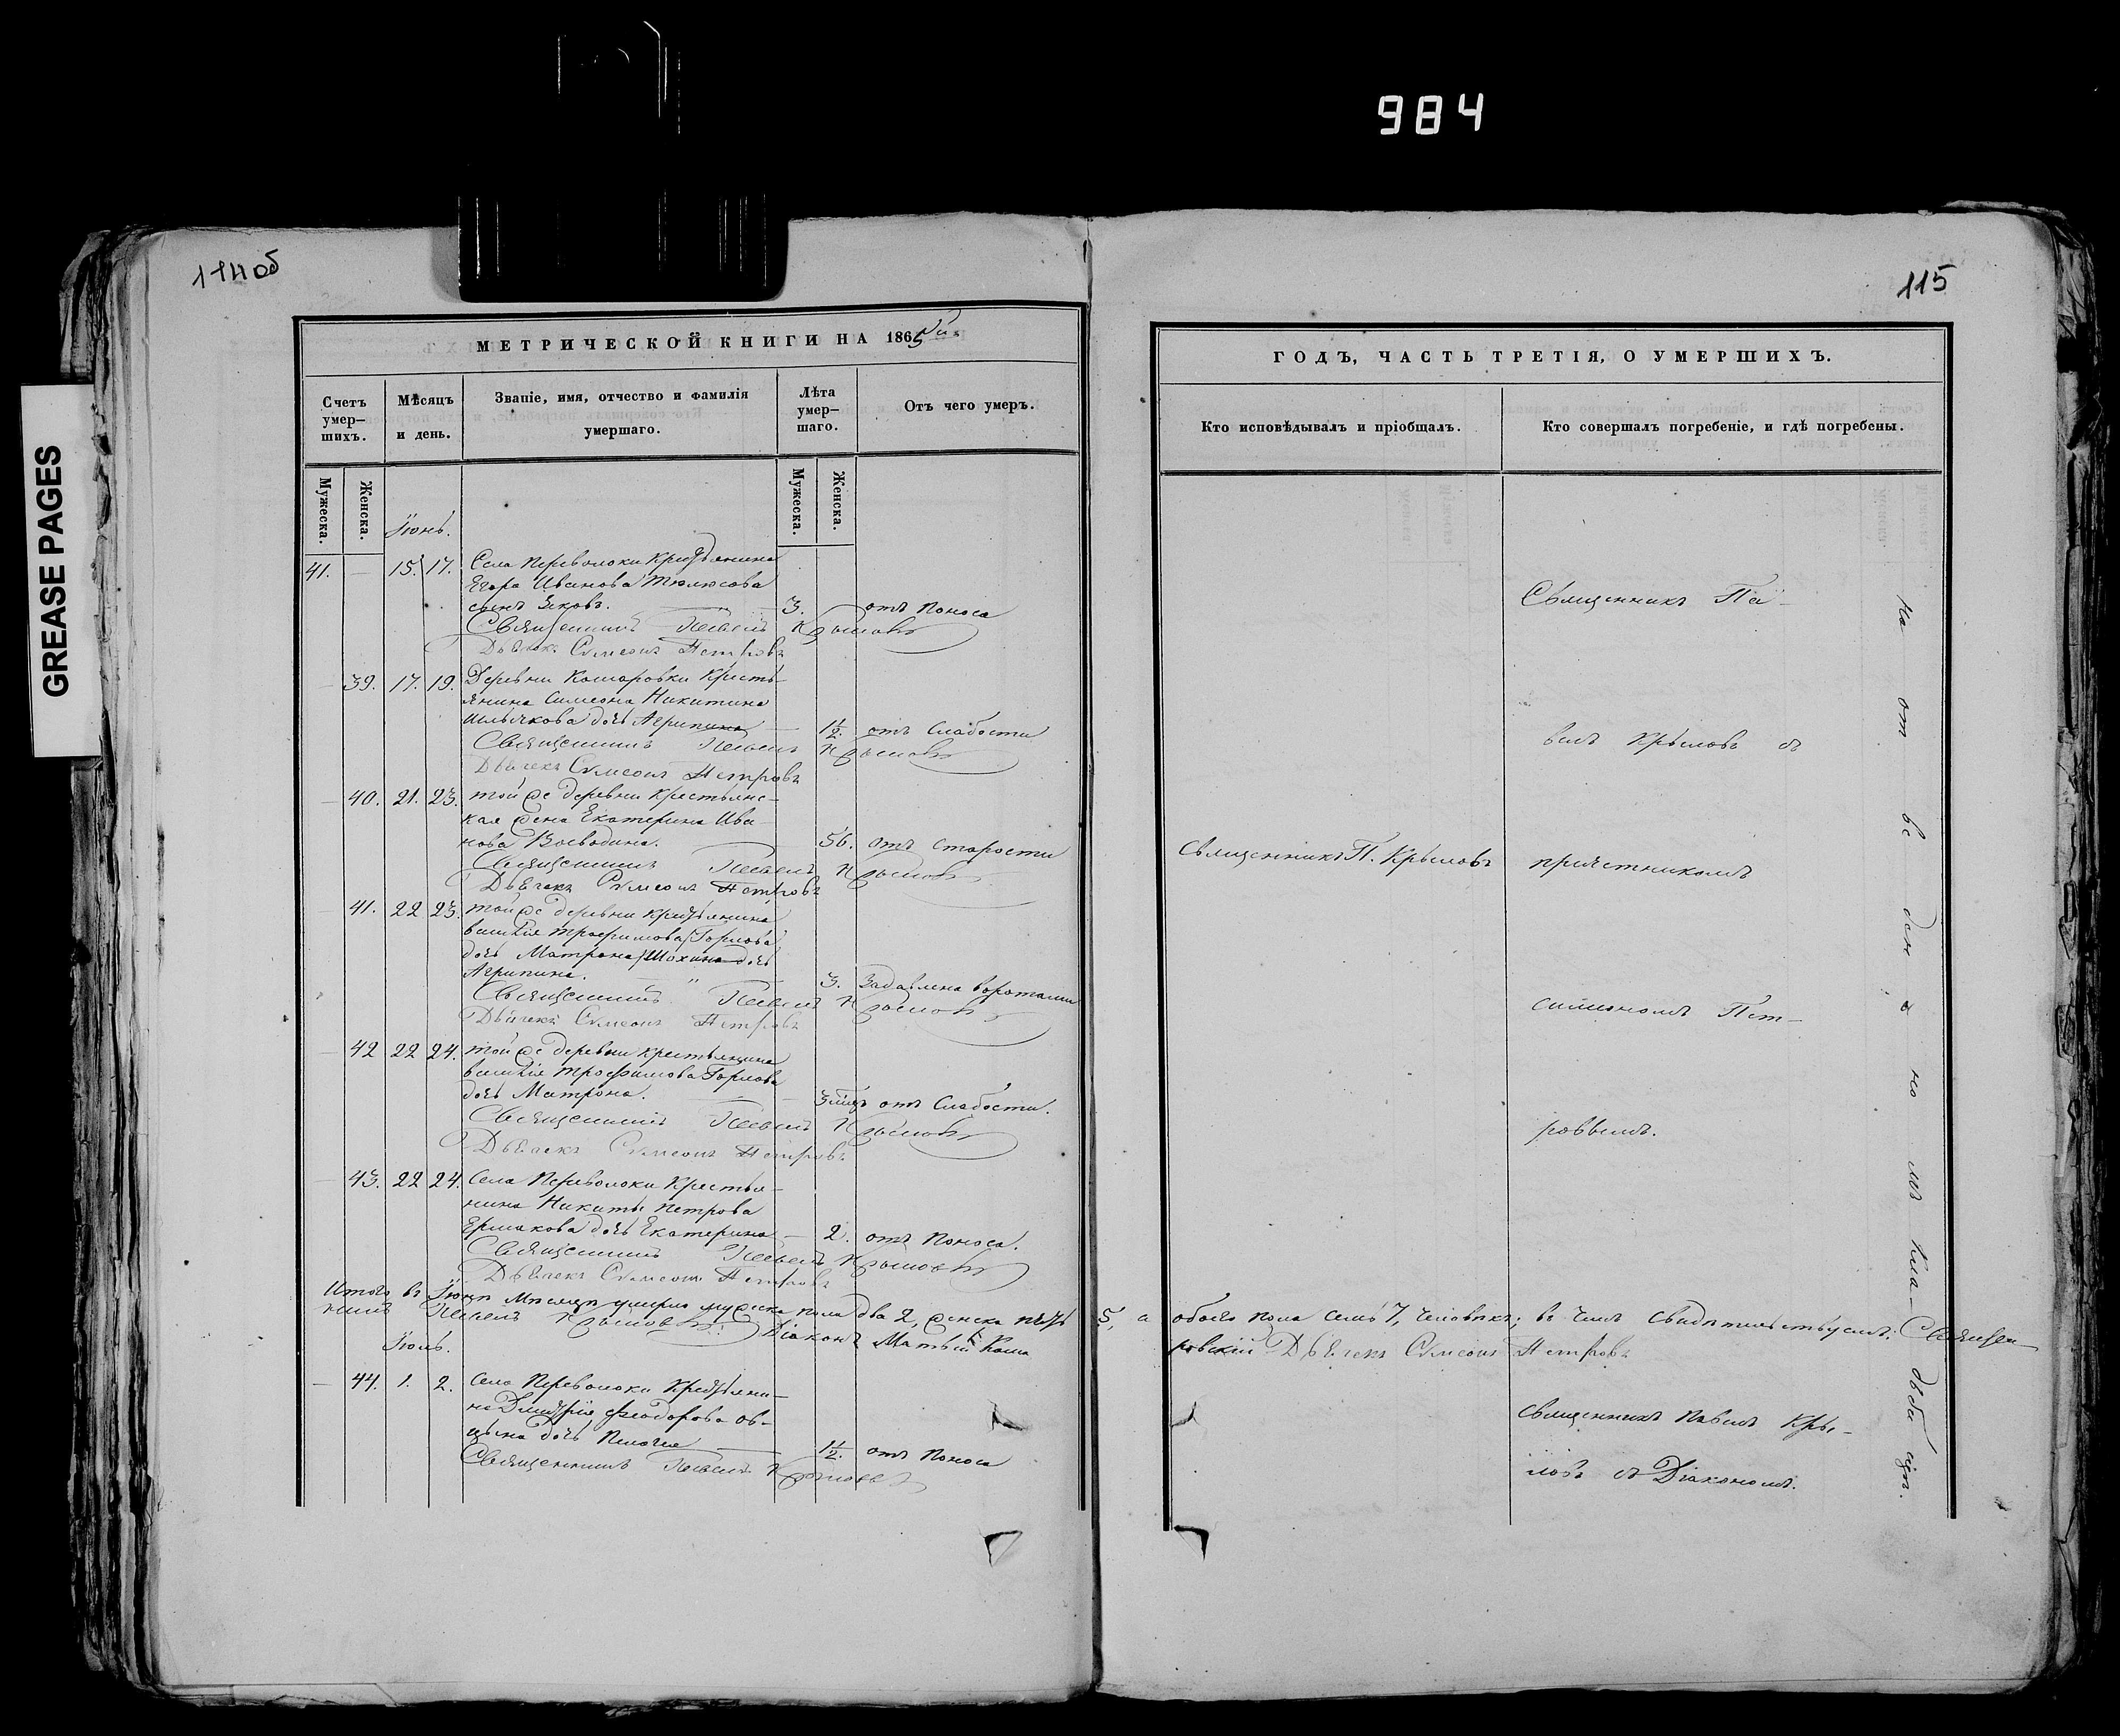 984
GREASE PAGES
114об
115
МЕТРИЧЕСКОЙ КНИГИ НА 1865й
ГОДЪ, ЧАСТЬ ТРЕТІЯ, О УМЕРШИХЪ.
Счетъ умер-шихъ.
Мѣсяцъ и день.
Званіе, имя, отчество и фамилія умершаго.
Лѣта умер-шаго.
Отъ чего умеръ.
Кто исповѣдывалъ и пріобщалъ.
Кто совершалъ погребеніе, и гдѣ погребены.
Мужеска.
Женска.
Мужеска.
Женска.
Іюнь.
41. — 15. 17. Села Переволоки Крестьянина
Егора Иванова Тюлюсова
сынъ Яковъ. 3. отъ Поноса
Священникъ Павелъ Крыловъ
Дьячекъ Сѵмеонъ Петровъ
— 39. 17. 19. Деревни Кашаровки Кресть-
янина Симеона Никитина
дочь Агрипина — 1½. отъ Слабости
Священникъ Павелъ Крыловъ
Дьячекъ Сѵмеонъ Петровъ
— 40. 21. 23. той же деревни Крестьянс-
кая жена Екатерина Ива-
нова Воеводина. 56. отъ Старости
Священникъ Павелъ Крыловъ
Дьячекъ Сѵмеонъ Петровъ
— 41. 22 23. той же деревни Крестьянина
Василія Трофимова Горлова
дочь Матрона дочь
Агрипина. 3. Задавлена воротами
Священникъ Павелъ Крыловъ
Дьячекъ Сѵмеонъ Петровъ
— 42 22 24. той же деревни Крестьянина
Василія Трофимова Горлова
дочь Матрона. 3 мѣц отъ Слабости.
Священникъ Павелъ Крыловъ
Дьячекъ Сѵмеонъ Петровъ
— 43. 22 24. Села Переволоки Крестья-
нина Никиты Петрова
Ермакова дочь Екатерина — 2. отъ Поноса.
Священникъ Павелъ Крыловъ
Дьячекъ Сѵмеонъ Петровъ
Итого въ Іюнѣ Мѣсяцѣ умерло мужеска пола два 2, женска пять 5, а обоего пола семь 7, человѣкъ; въ чемъ свидѣтельствуемъ: Священ-
никъ Павелъ Крыловъ: Діаконъ Матвѣй Каша ровскій Дьячекъ Сѵмеонъ Петровъ
Іюль.
— 44. 1. 2. Села Переволоки Крестьяни-
на Димитрія Феодорова Ов-
цына дочь Пелагія — 1½. отъ Поноса
Священникъ Павелъ Крыловъ
Священникъ Па-
велъ Крыловъ съ
Священникъ П. Крыловъ
причетникомъ
Симеономъ Пет-
ровымъ.
Священникъ Павелъ Кры-
ловъ съ Діакономъ.
На от ве ден но мъ кла- дбищѣ.